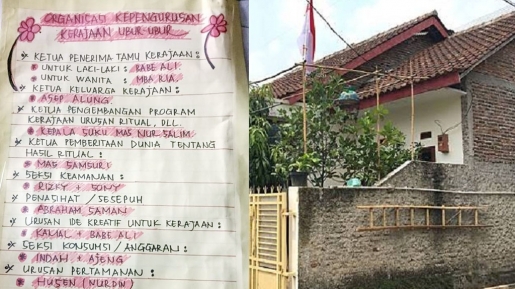 ORGANISASI KEPENGURUSAN
KERAJAAN UBUR-UBUR
KETUA PENERIMA TAMU KERAJAAN :
UNTUK LAKI-LAKI : BABE ALI
UNTUK WANITA : MBA RIA
KETUA KELUARGA KERAJAAN :
ASEP ALUNG
KETUA PENGEMBANGAN PROGRAM
KERAJAAN URUSAN RITUAL, DLL.
KEPALA SUKU MAS NUR SALIM
KETUA PEMBERITAAN DUNIA TENTANG
HASIL RITUAL :
MAS SAMSURI
SEKSI KEAMANAN :
RIZKY + SONY
PENASIHAT / SESEPUH
ABRAHAM SAMAN
URUSAN IDE KREATIF UNTUK KERAJAAN :
KAMAL + BABE ALI
SEKSI KONSUMSI / ANGGARAN :
INDAH + AJENG
URUSAN PERTAMANAN :
HUSEN (NURDIN)